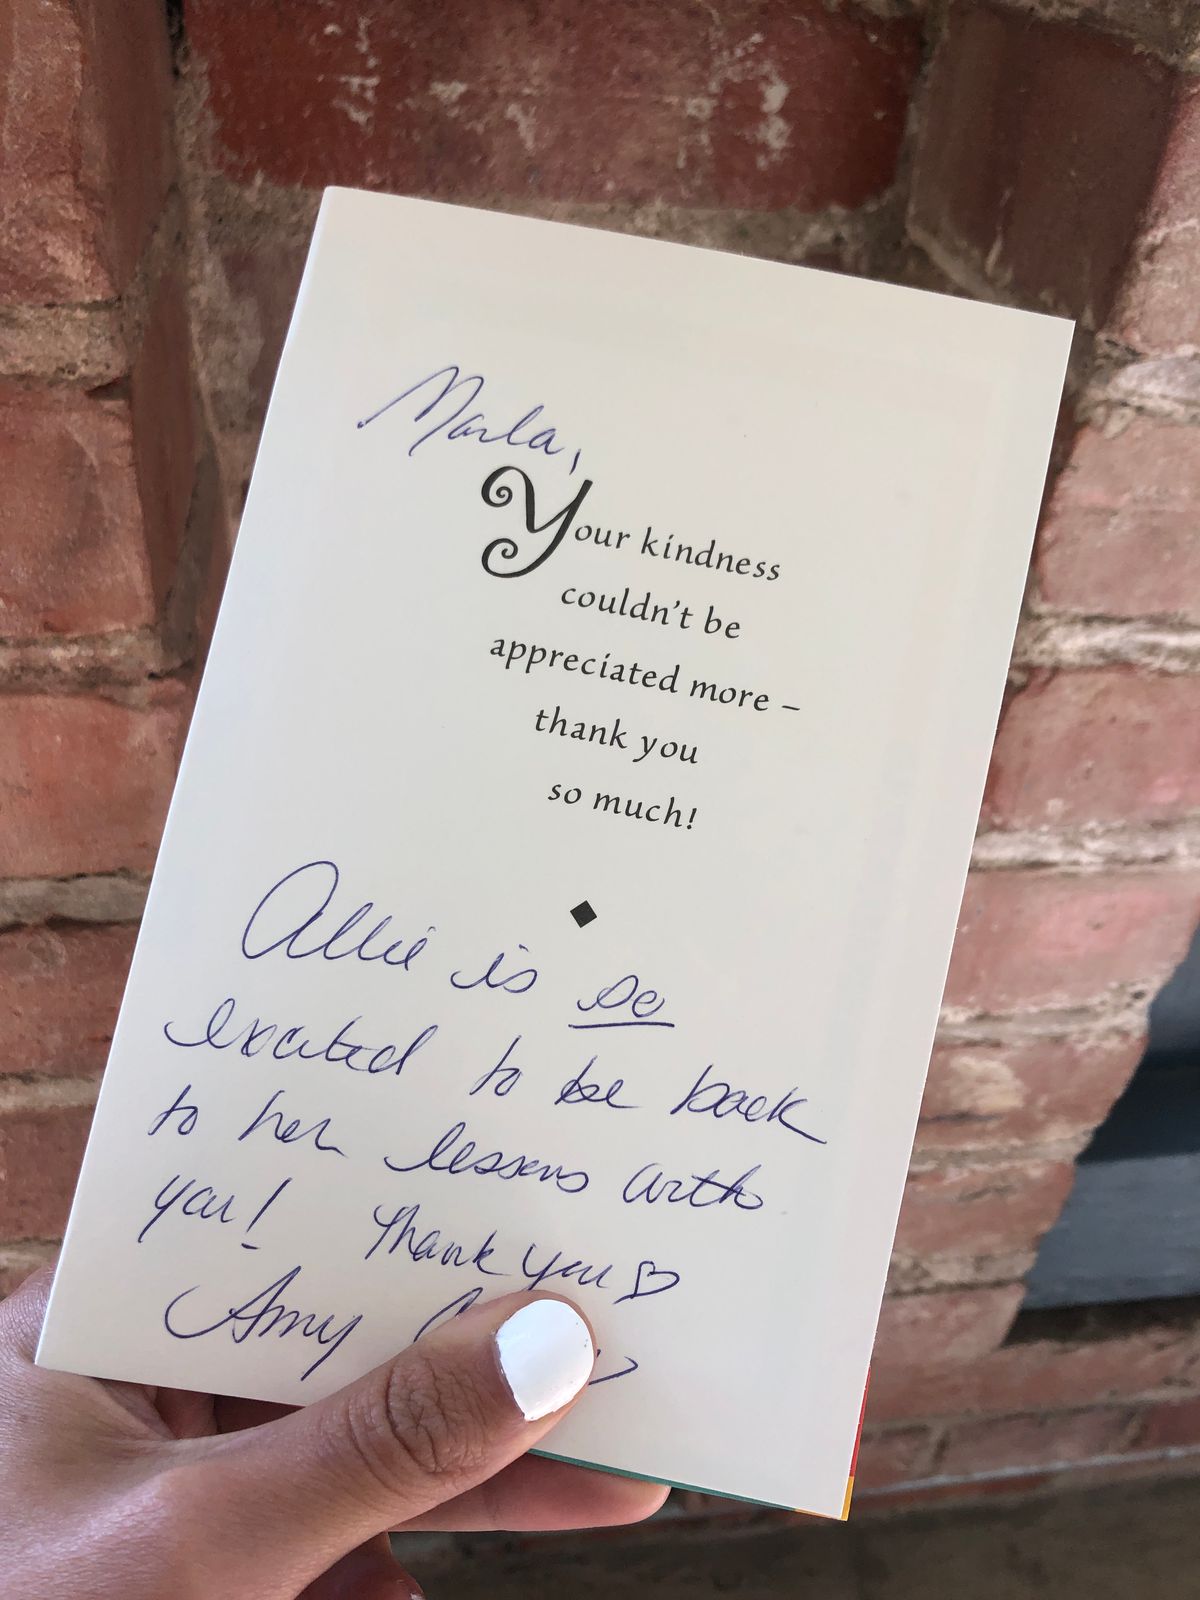 Marla,
Your kindness
couldn't be
appreciated more –
thank you
so much!
Allie is so
excited to be back
to her lessons with
you! Thank you ♡
Amy